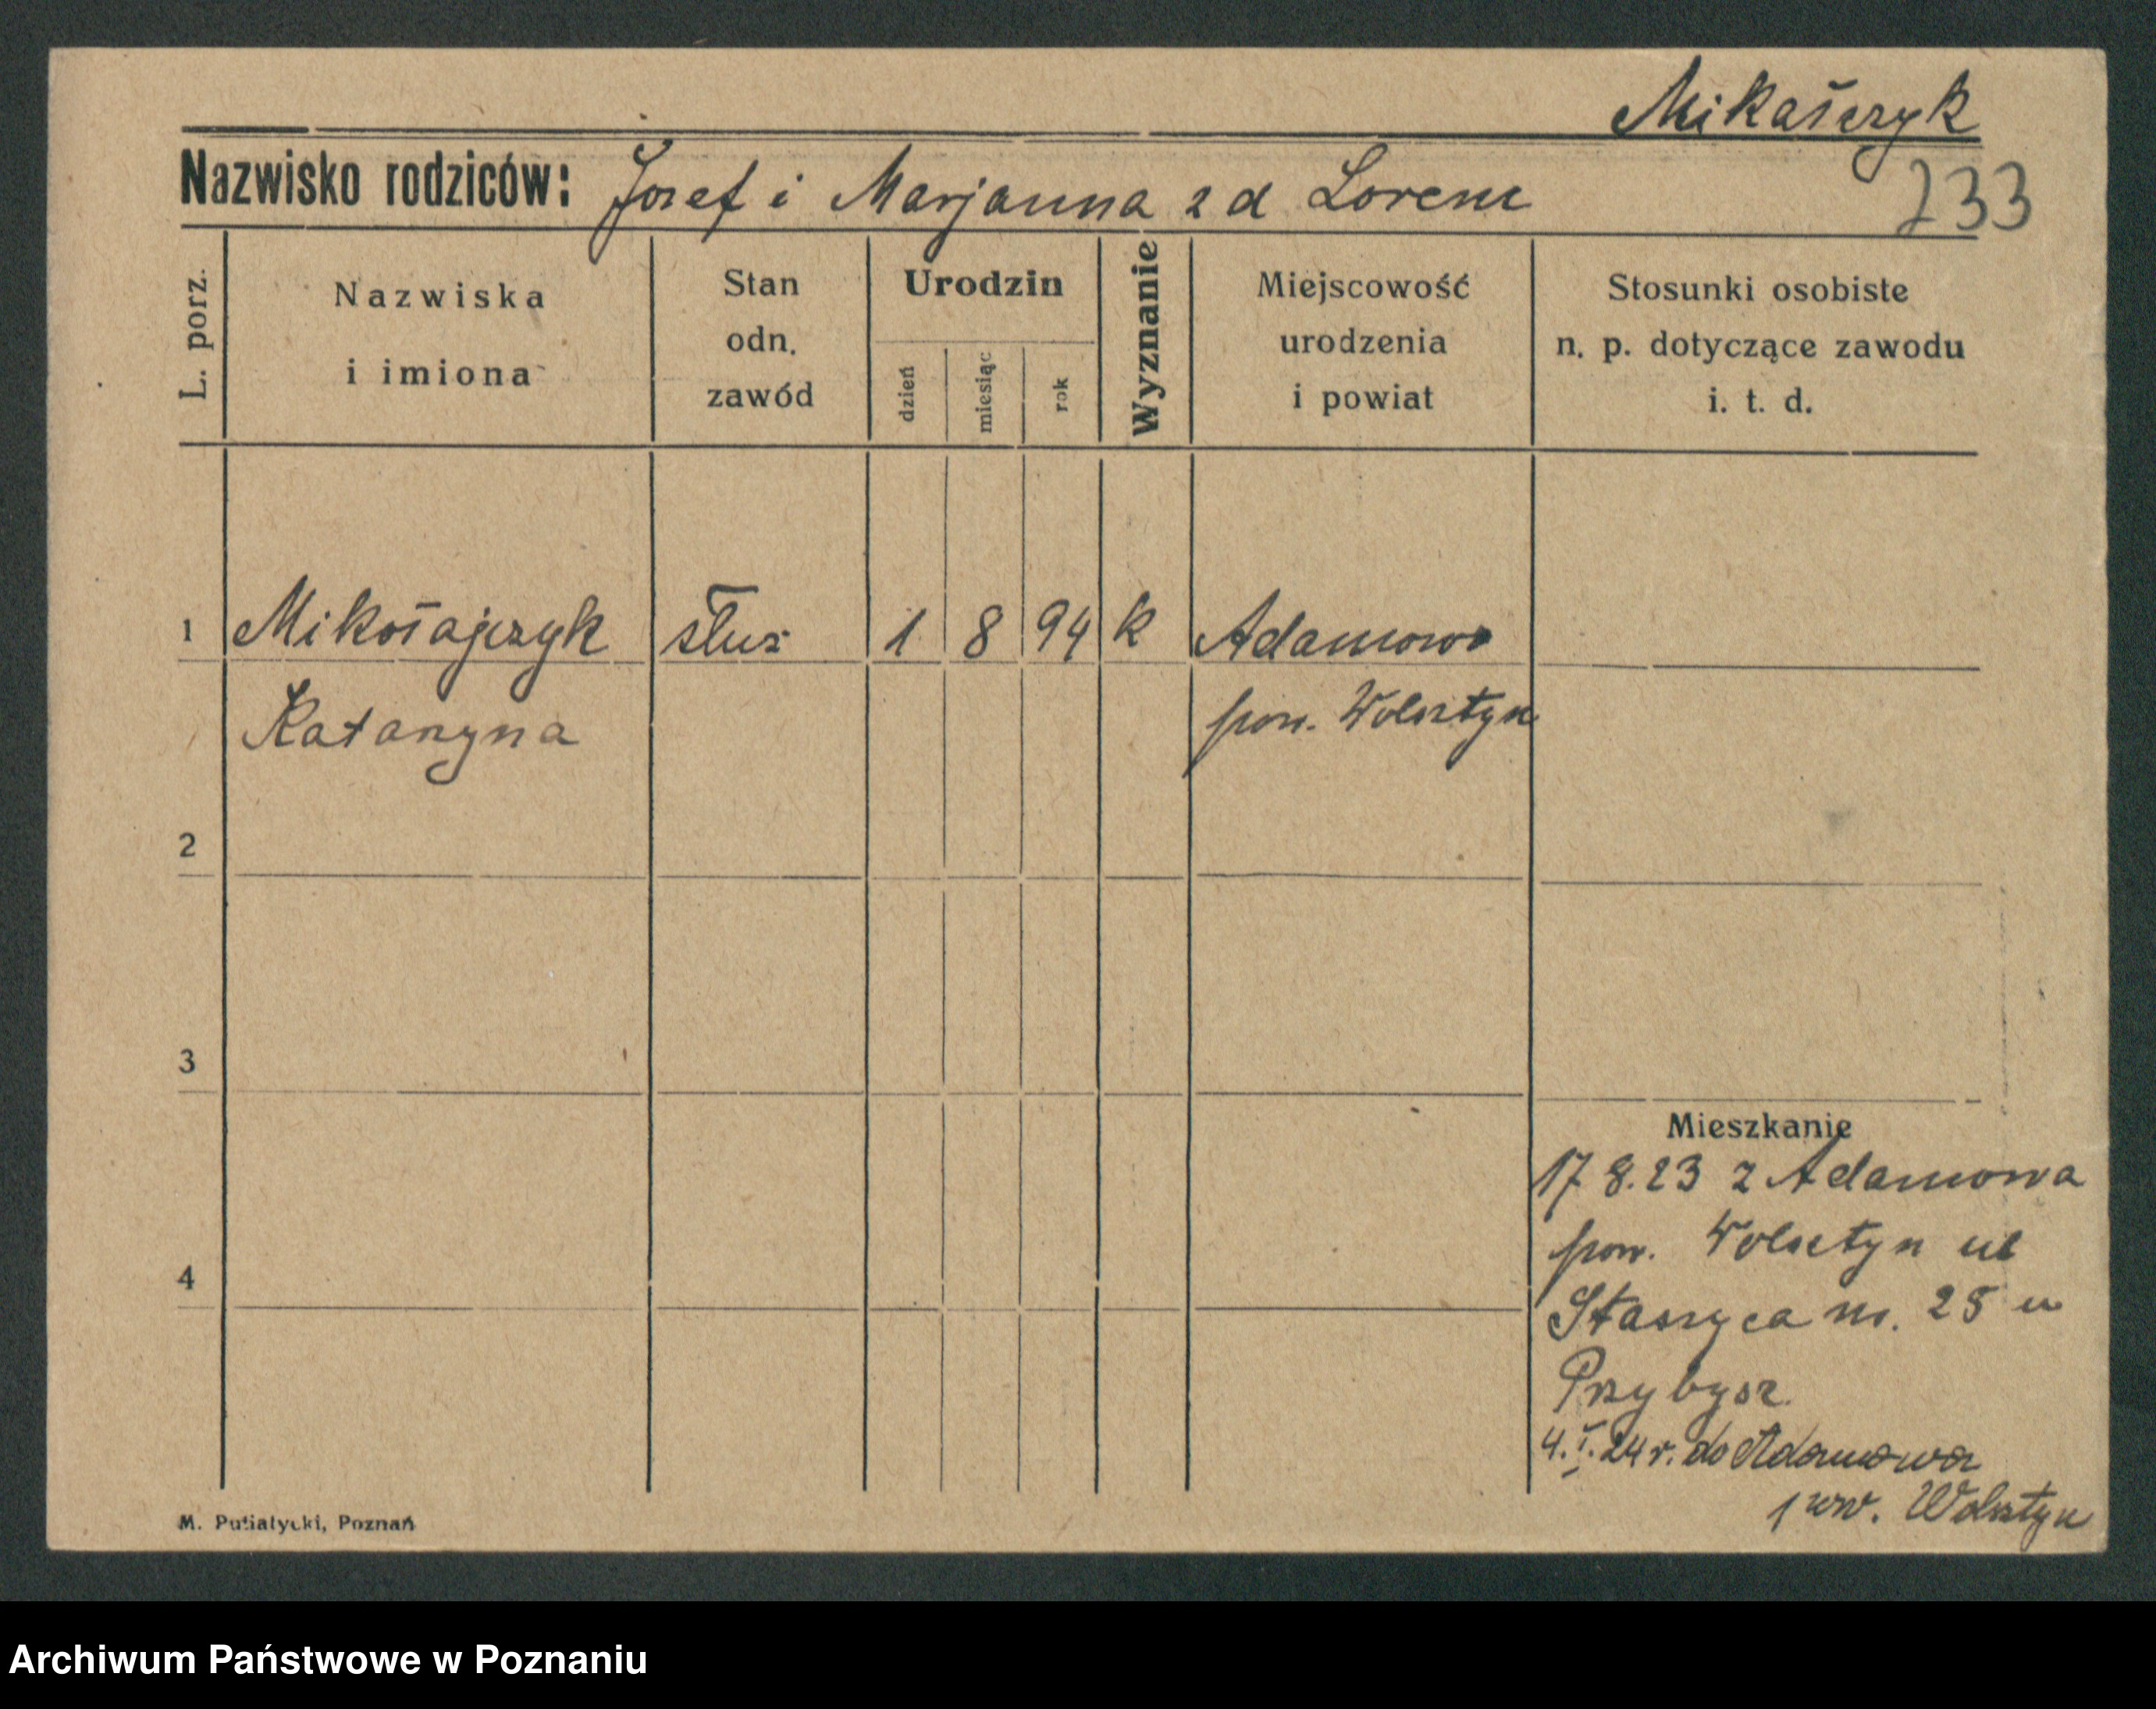 Mikołajczyk
Nazwisko rodziców: Józef i Marjanna z d Lorenc
733
L. porz.
Nazwiska
i imiona
Stan
odn.
zawód
Urodzin
dzień
miesiąc
rok
Wyznanie
Miejscowość
urodzenia
i powiat
Stosunki osobiste
n. p. dotyczące zawodu
i. t. d.
1 Mikołajczyk służ 1 8 94 k Adamowo
Katarzyna pow. Wolsztyn
2
3
4
Mieszkanie
17 8.23 z Adamowa
pow. Wolsztyn ul
Staszyca nr. 25 u
Przybysz.
4.I.24 r. do Adamowa
pow. Wolsztyn
M. Putiatycki, Poznań
Archiwum Państwowe w Poznaniu